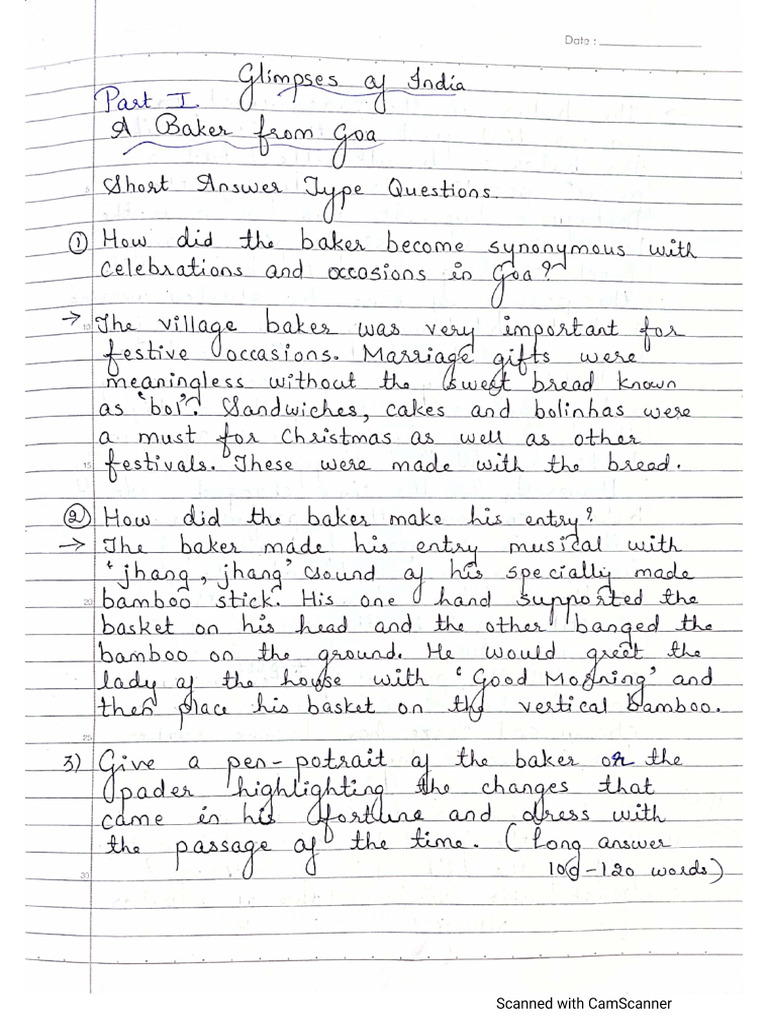 Date :
Glimpses of India
Part I
A Baker from Goa
Short Answer Type Questions.
① How did the baker become synonymous with
celebrations and occasions in Goa?
→ The village baker was very important for
festive occasions. Marriage gifts were
meaningless without the sweet bread known
as 'bol'. Sandwiches, cakes and bolinhas were
a must for Christmas as well as other
festivals. These were made with the bread.
② How did the baker make his entry?
→ The baker made his entry musical with
'jhang, jhang' sound of his specially made
bamboo stick. His one hand supported the
basket on his head and the other banged the
bamboo on the ground. He would greet the
lady of the house with 'Good Morning' and
then place his basket on the vertical bamboo.
3) Give a pen-potrait of the baker or the
pader highlighting the changes that
came in his fortune and dress with
the passage of the time. (Long answer
100-120 words)
Scanned with CamScanner